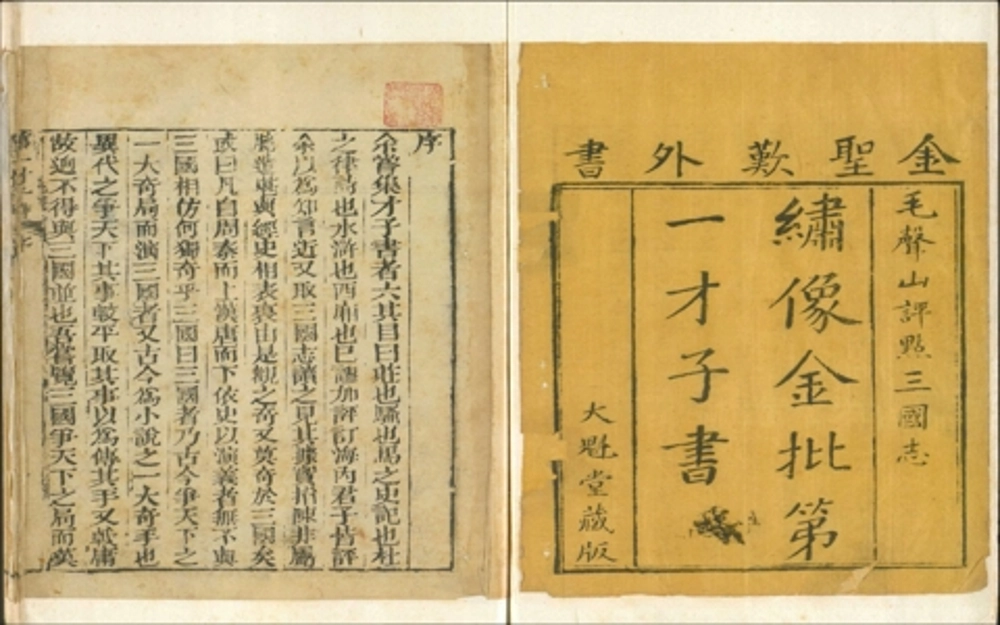 金聖歎外書
毛聲山評點三國志
繡像金批第
一才子書
大魁堂藏版
序
余嘗集才子書者六其目曰莊也騷也馬之史記也杜
之律詩也水滸也西廂也已謬加評訂海內君子皆許
余以爲知言近又取三國志讀之見其據實指陳非屬
臆造堪與經史相表裏由是觀之奇又莫奇於三國矣
或曰凡自周秦而上漢唐而下依史以演義者無不與
三國相仿何獨奇乎三國曰三國者乃古今爭天下之
一大奇局而演三國者又古今爲小說之一大奇手也
異代之爭天下其事較平取其事以爲傳其手又較庸
故迥不得與三國並也吾嘗覽三國爭天下之局而歎